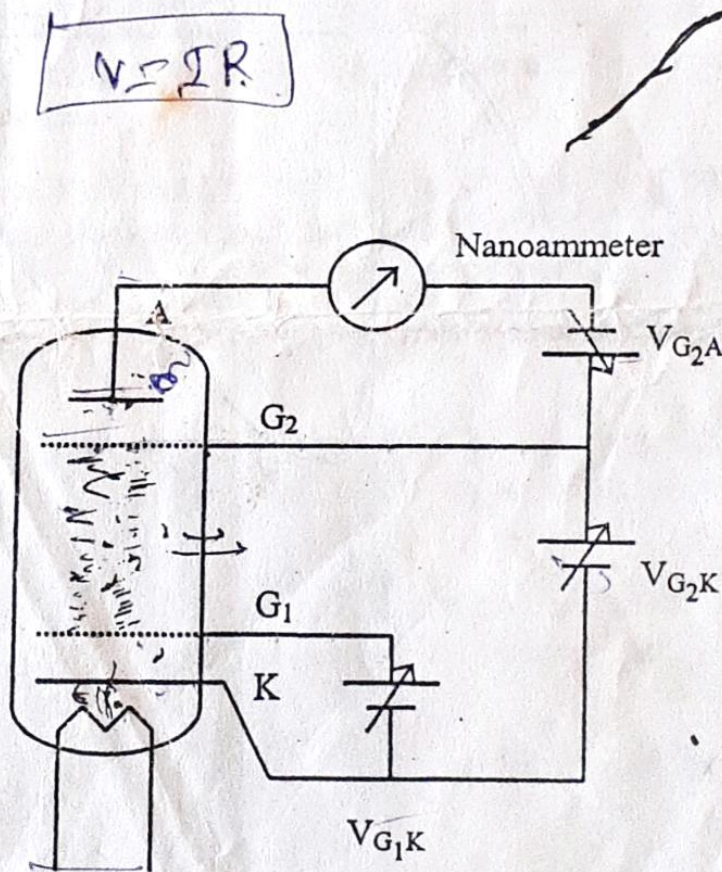 V = IR
Nanoammeter
A
V_{G_2A}
G_2
V_{G_2K}
G_1
K
V_{G_1K}